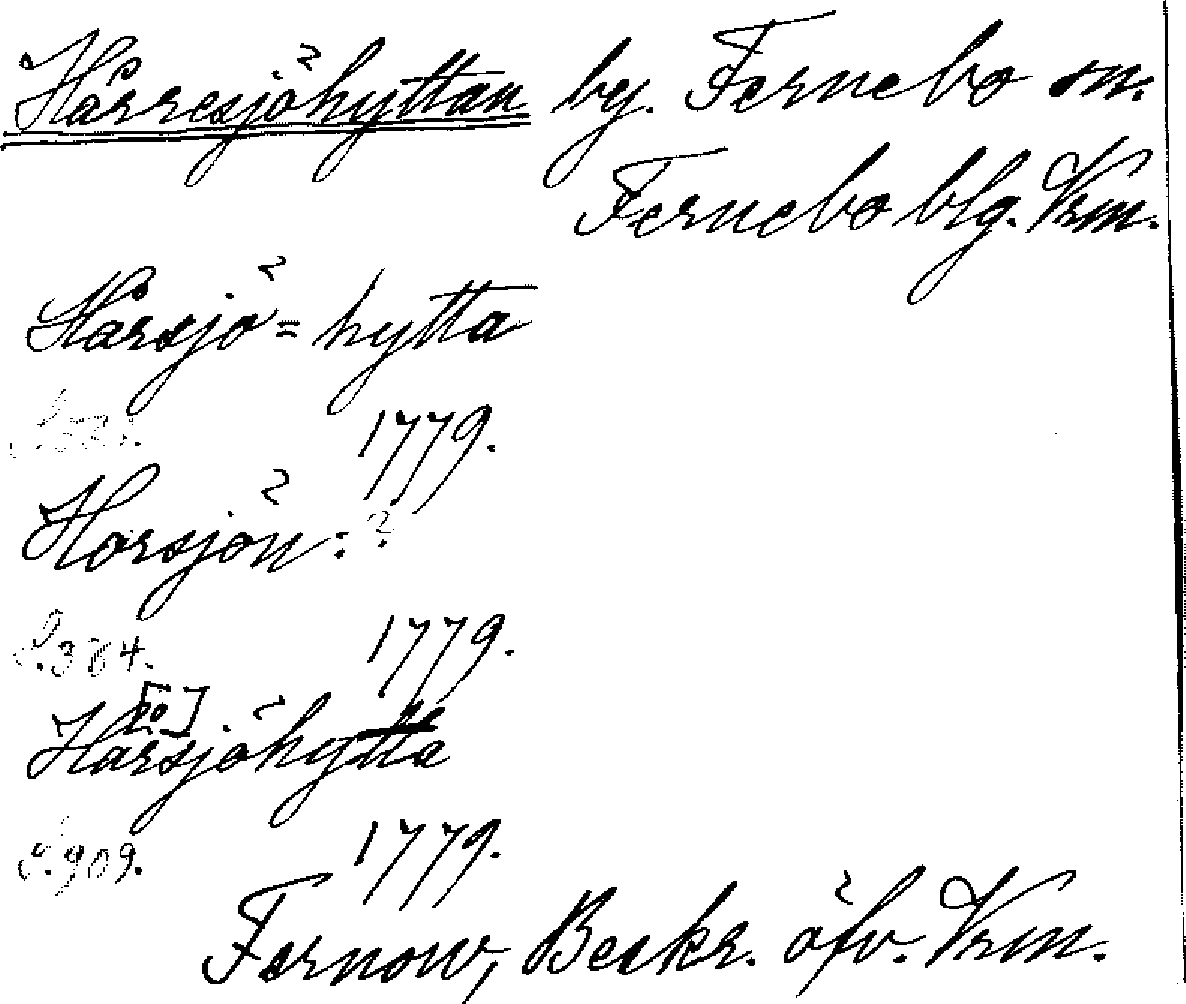 Hårresjöhyttan by. Fernebo sn.
Fernebo blg. Vrm.
Hårsjö=hytta
1779.
Horsjön:?
S.384. 1779.
Hårsjöhytta
S.909. 1779.
Fernow, Beskr. öfv. Vrm.